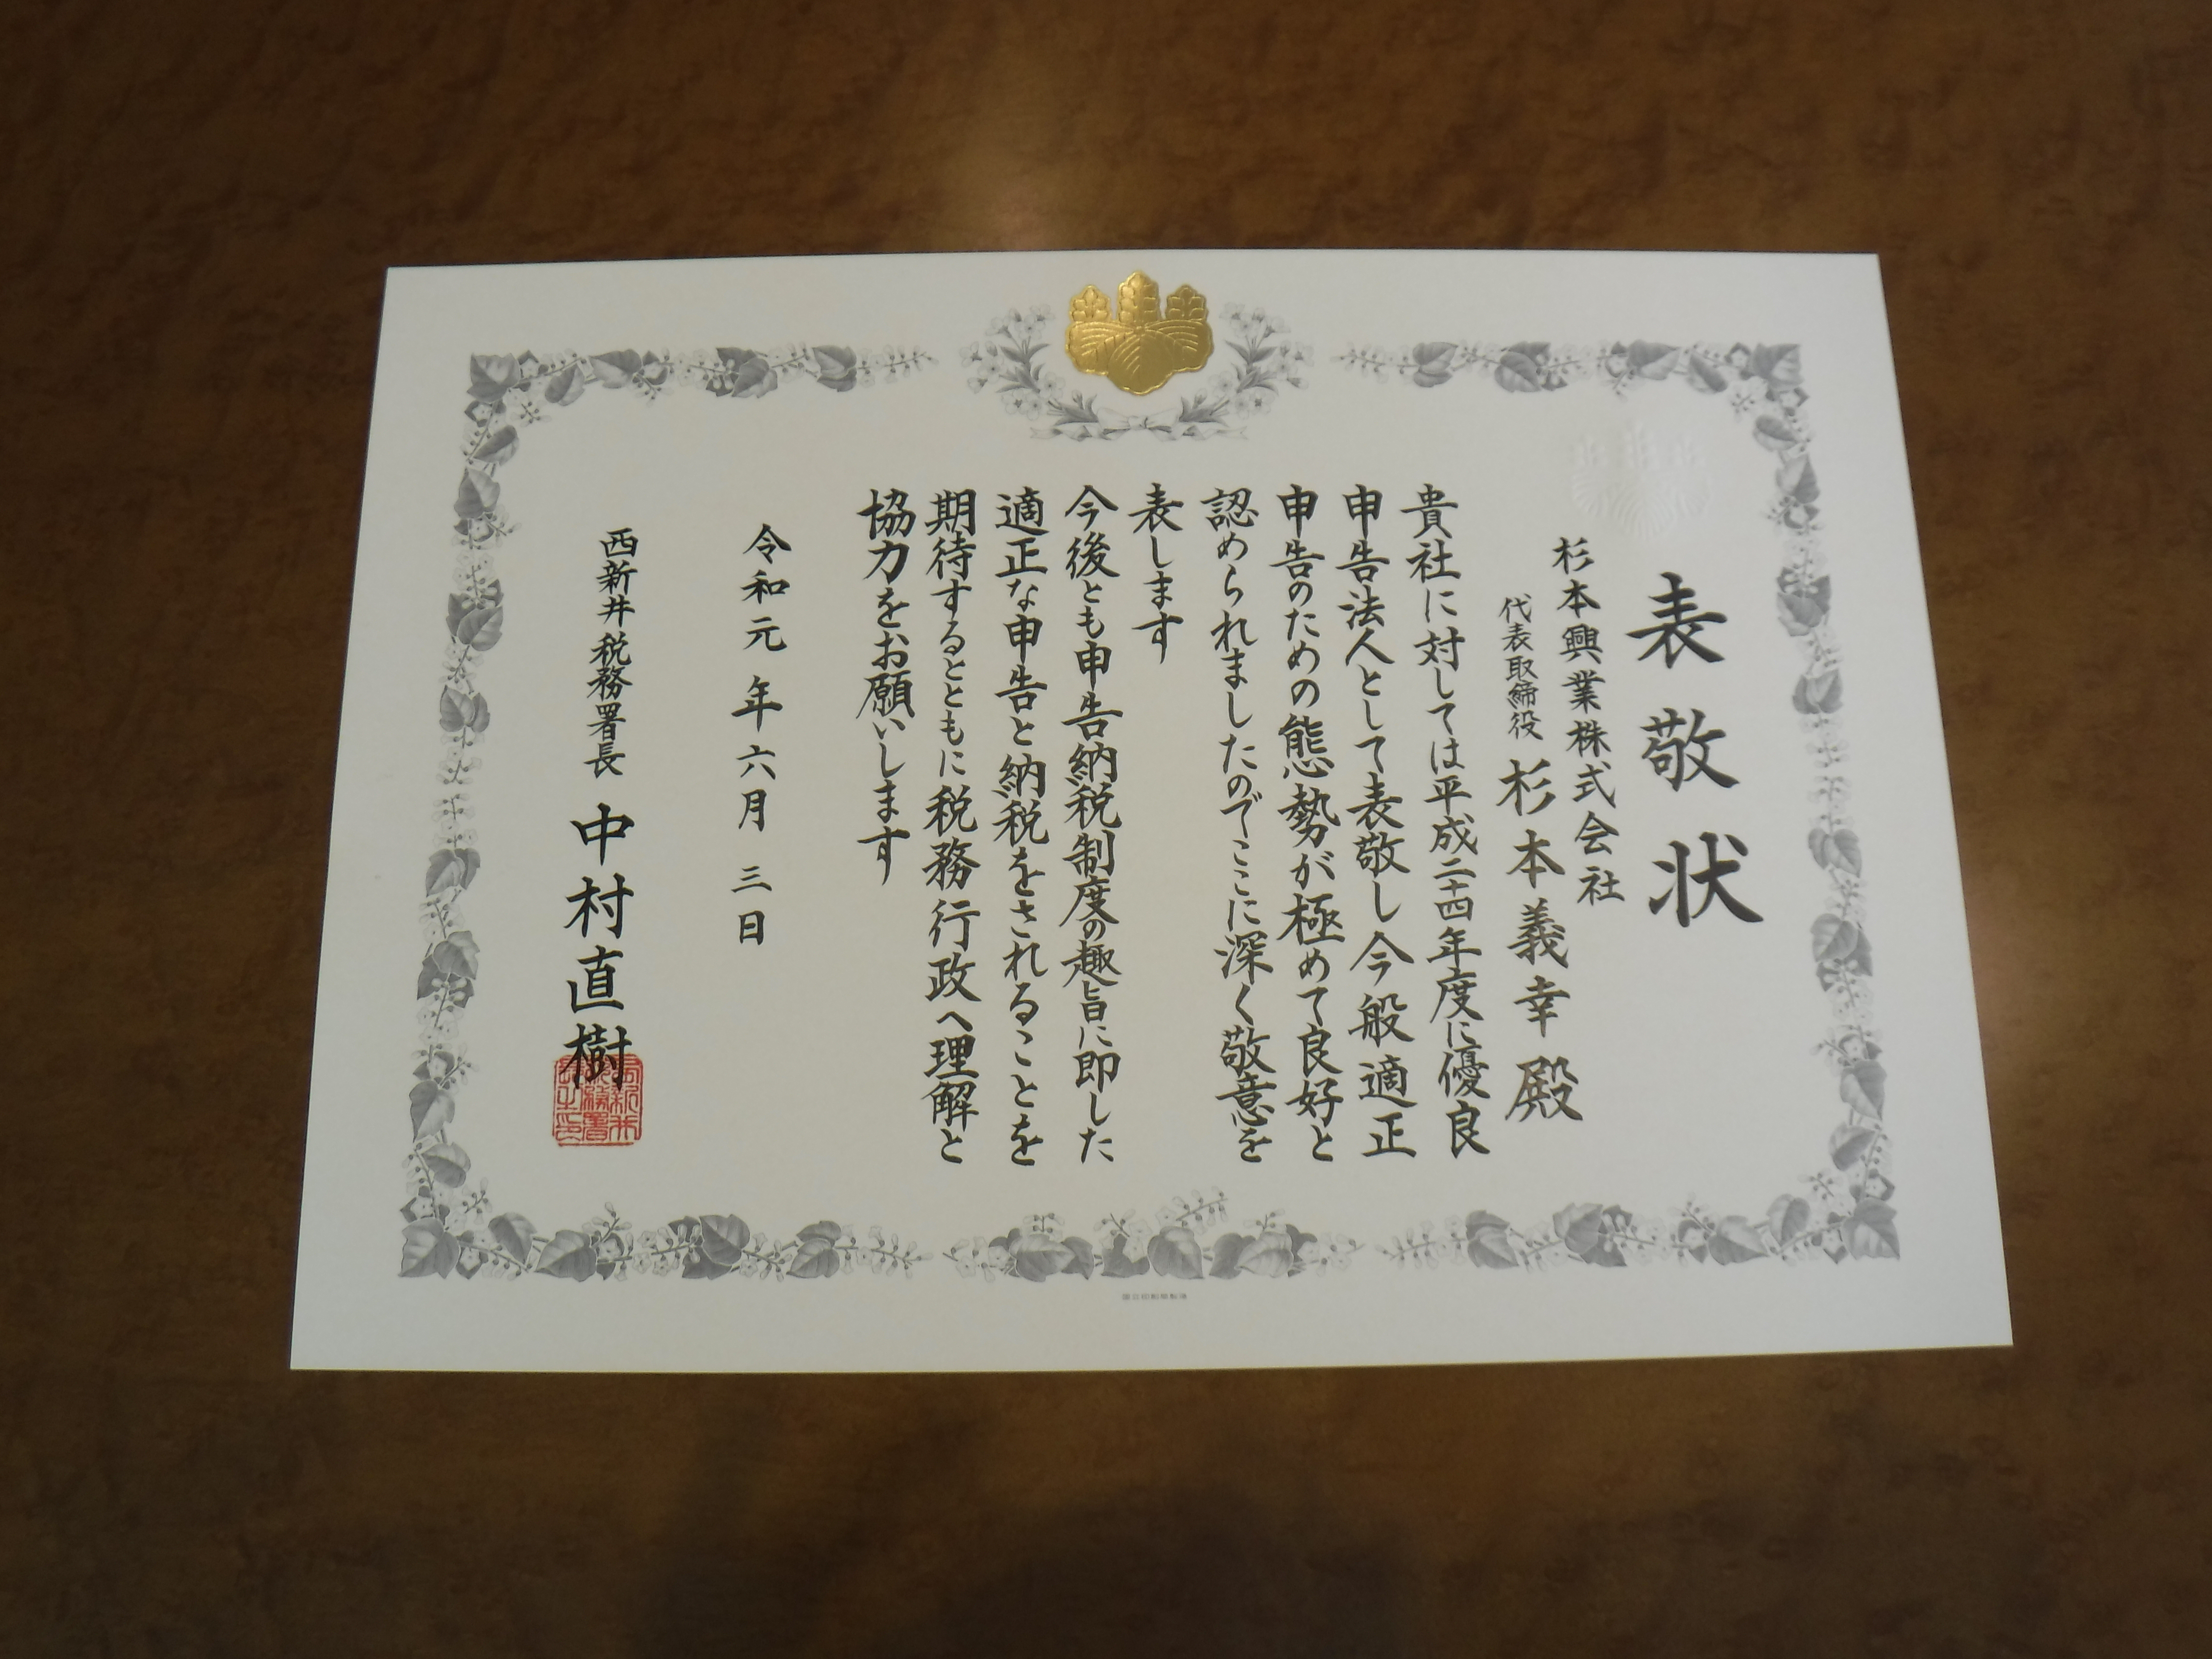 表敬状
杉本興業株式会社
代表取締役 杉本義幸 殿
貴社に対しては平成二十四年度に優良
申告法人として表敬し今般適正
申告のための態勢が極めて良好と
認められましたのでここに深く敬意を
表します
今後とも申告納税制度の趣旨に即した
適正な申告と納税をされることを
期待するとともに税務行政へ理解と
協力をお願いします
令和元年六月三日
西新井税務署長 中村直樹
西新井税務署長之印